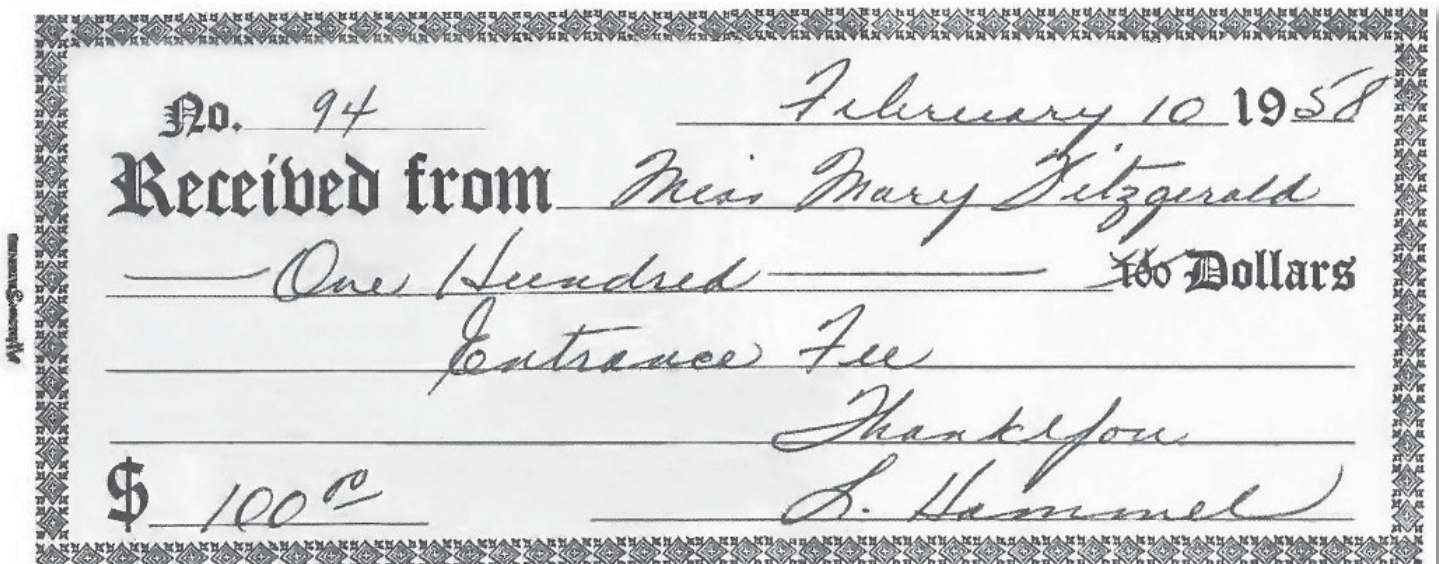 No. 94 February 10 1958
Received from Miss Mary Fitzgerald
One Hundred 100 Dollars
Entrance Fee
Thank You
$ 100.00 L. Hammel